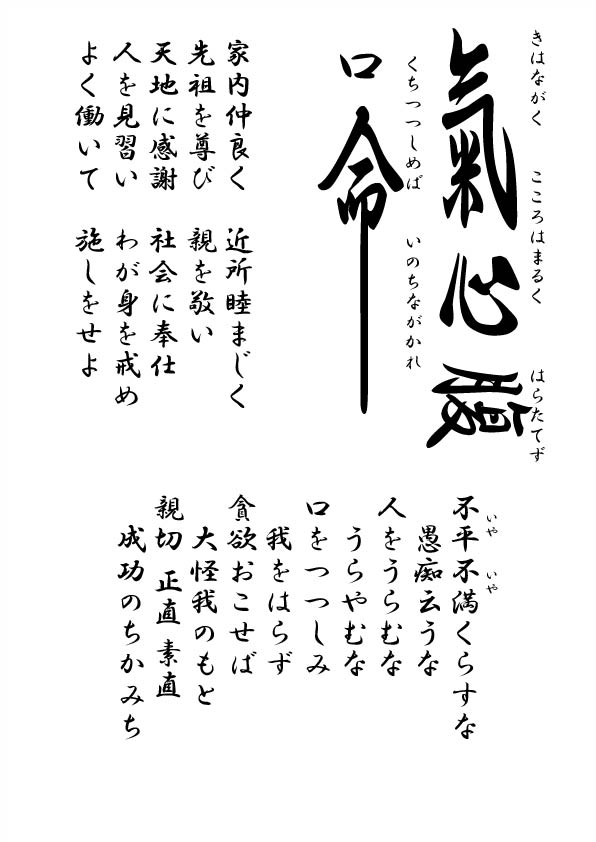 きはながく こころはまるく はらたてず
氣心腹
くちつつしめば いのちながかれ
口命
家内仲良く 近所睦まじく
先祖を尊び 親を敬い
天地に感謝 社会に奉仕
人を見習い わが身を戒め
よく働いて 施しをせよ
いや いや
不平不満くらすな
愚痴云うな
人をうらむな
うらやむな
口をつつしみ
我をはらず
貪欲おこせば
大怪我のもと
親切 正直 素直
成功のちかみち